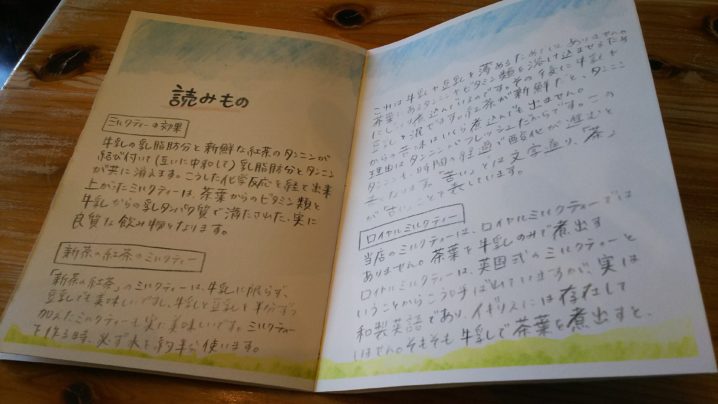 読みもの
ミルクティーの効果
牛乳の乳脂肪分と新鮮な紅茶のタンニンが
結び付いて(互いに中和して)乳脂肪分とタンニ
ンが共に消えます。こうした化学反応を経て出来
上がったミルクティーは、茶葉からのビタミン類と
牛乳からの乳タンパク質で満たされた、実に
良質な飲み物となります。
新茶の紅茶のミルクティー
「新茶の紅茶」のミルクティーは、牛乳に限らず、
豆乳でも美味しいですし、牛乳と豆乳を半分ずつ
加えたミルクティーも実に美味いです。ミルクティー
を作る時、必ず水を約半分使います。
これは牛乳や豆乳を薄めるためではありません。
茶葉にあるタンニンやビタミン類を溶け込ませるため
にしっかり煮込んでいるのです。その後に牛乳や
豆乳を混ぜます。紅茶が新鮮だと、タンニン
からの苦味はいくら煮込んでも出ません。
理由はタンニンがフレッシュだからです。この
タンニンも、時間の経過で酸化が進むと
苦くなります。「苦い」とは文字通り、「茶」
が「古い」ことを表しています。
ロイヤルミルクティー
当店のミルクティーは、ロイヤルミルクティーでは
ありません。茶葉を牛乳のみで煮出す
ロイヤルミルクティーは、英国式のミルクティーと
いうことからこう呼ばれていますが、実は
和製英語であり、イギリスには存在して
いません。そもそも牛乳で茶葉を煮出すと、